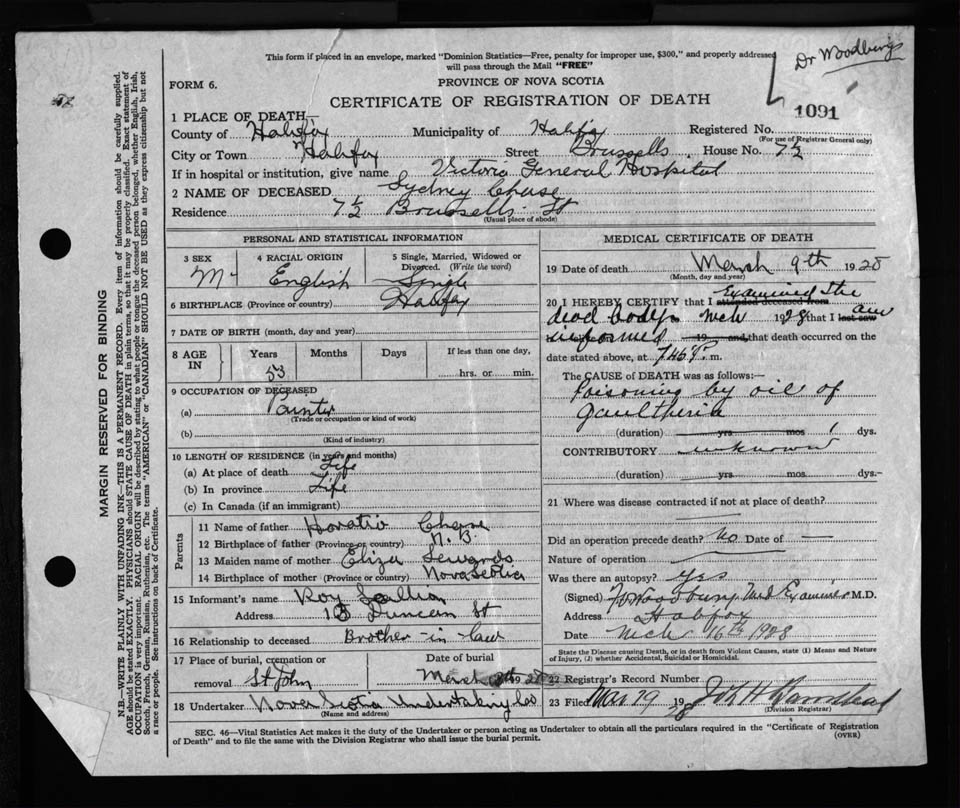 This form if placed in an envelope, marked "Dominion Statistics—Free, penalty for improper use, $300," and properly addressed
will pass through the Mail "FREE"
Dr Woodbury
FORM 6.
PROVINCE OF NOVA SCOTIA
CERTIFICATE OF REGISTRATION OF DEATH
1091
1 PLACE OF DEATH
County of Halifax Municipality of Halifax Registered No.
(For use of Registrar General only)
City or Town Halifax Street Brussells House No. 7½
If in hospital or institution, give name Victoria General Hospital
2 NAME OF DECEASED Sydney Chase
Residence 7½ Brussells St
(Usual place of abode)
PERSONAL AND STATISTICAL INFORMATION
3 SEX 4 RACIAL ORIGIN 5 Single, Married, Widowed or
Divorced. (Write the word)
M English Single
6 BIRTHPLACE (Province or country) Halifax
7 DATE OF BIRTH (month, day and year)
8 AGE IN Years Months Days If less than one day,
53 hrs. or min.
9 OCCUPATION OF DECEASED
(a) Painter
(Trade or occupation or kind of work)
(b)
(Kind of industry)
10 LENGTH OF RESIDENCE (in years and months)
(a) At place of death Life
(b) In province Life
(c) In Canada (if an immigrant)
Parents
11 Name of father Horatio Chase
12 Birthplace of father (Province or country) N.B.
13 Maiden name of mother Eliza
14 Birthplace of mother (Province or country) Nova Scotia
15 Informant's name Roy Scallion
Address Duncan St
16 Relationship to deceased Brother-in-law
17 Place of burial, cremation or Date of burial
removal St John March 1928
18 Undertaker Nova Scotia Undertaking Co
(Name and address)
MEDICAL CERTIFICATE OF DEATH
19 Date of death March 9th 1928
(Month, day and year)
20 I HEREBY CERTIFY that I attended deceased from Examining the
dead body Mch 1928 that I last saw am
informed 19 and, that death occurred on the
date stated above, at 7.45 P. m.
The CAUSE of DEATH was as follows:—
Poisoning by oil of
gaultheria
(duration) yrs mos 1 dys.
CONTRIBUTORY unknown
(duration) yrs mos dys.
21 Where was disease contracted if not at place of death?
Did an operation precede death? No Date of —
Nature of operation
Was there an autopsy? yes
(Signed) Woodbury Med Examiner M.D.
Address Halifax
Date Mch 16th 1928
State the Disease causing Death, or in death from Violent Causes, state (1) Means and Nature
of Injury, (2) whether Accidental, Suicidal or Homicidal.
22 Registrar's Record Number
23 Filed Mar 19 1928
(Division Registrar)
SEC. 46—Vital Statistics Act makes it the duty of the Undertaker or person acting as Undertaker to obtain all the particulars required in the "Certificate of Registration
of Death" and to file the same with the Division Registrar who shall issue the burial permit.
(OVER)
MARGIN RESERVED FOR BINDING
N.B.—WRITE PLAINLY WITH UNFADING INK—THIS IS A PERMANENT RECORD. Every item of information should be carefully supplied.
AGE should be stated EXACTLY. PHYSICIANS should STATE CAUSE OF DEATH in plain terms, so that it may be properly classified. Exact statement of
OCCUPATION is very important. RACIAL ORIGIN will be described by stating to what people or tongue the deceased person belonged, whether English, Irish,
Scotch, French, German, Russian, Ruthenian, etc. The terms "AMERICAN" or "CANADIAN" SHOULD NOT BE USED as they express citizenship but not
a race or people. See instructions on back of Certificate.